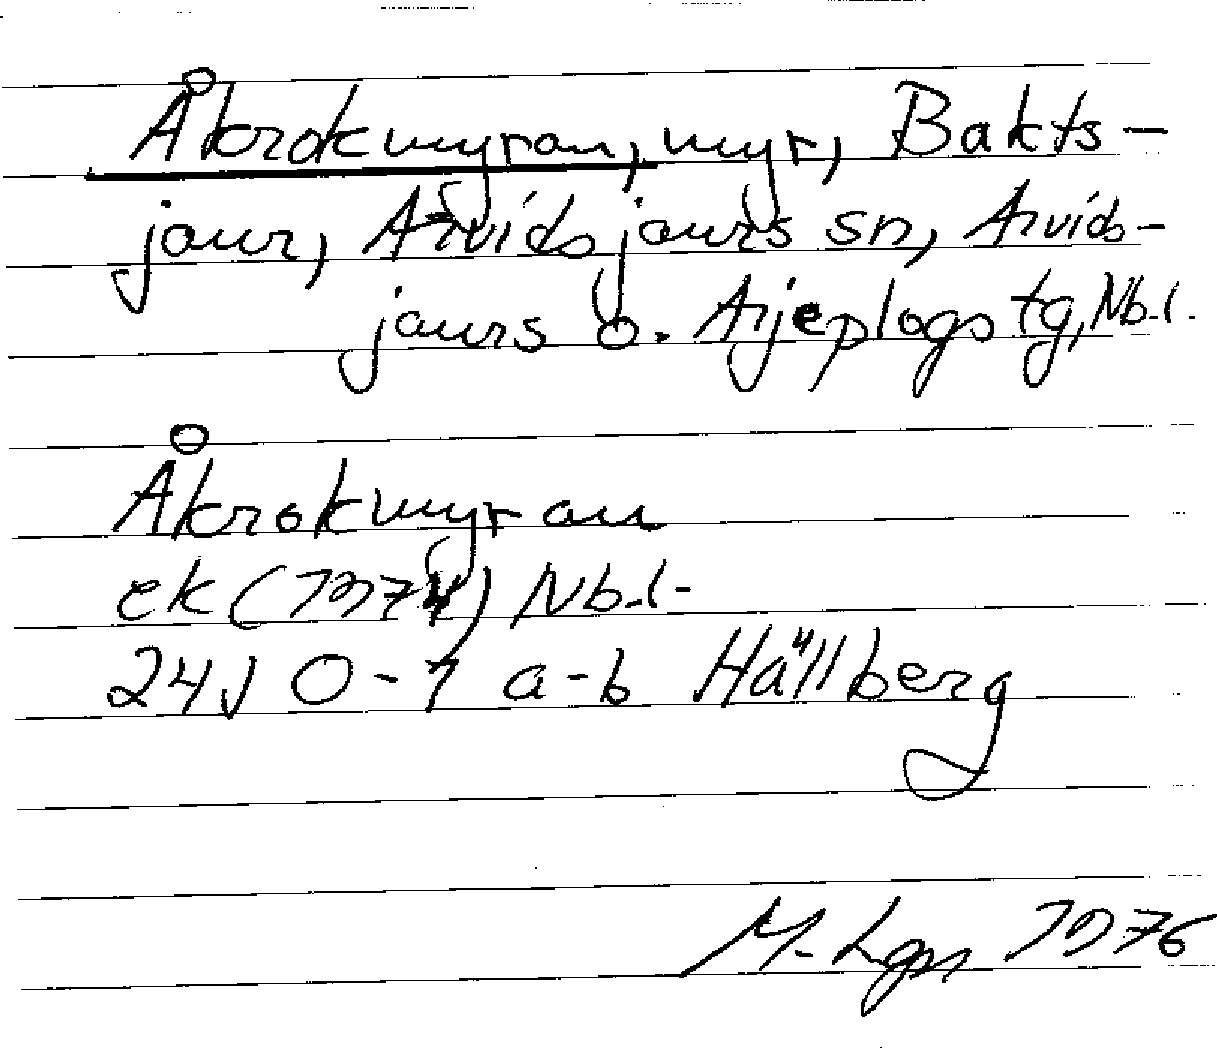 Åkrokmyran, myr, Bakts-
jaur, Arvidsjaurs sn, Arvids-
jaurs o. Arjeplogs tg, Nb.l.
Åkrokmyran
ek (1974) Nb.l.
24J 0-1 a-b Hällberg
M. Lgn 1976